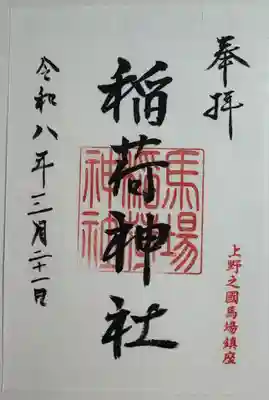 奉拝
稲荷神社
馬場
稲荷
神社
令和八年三月二十一日
上野之國馬場鎮座